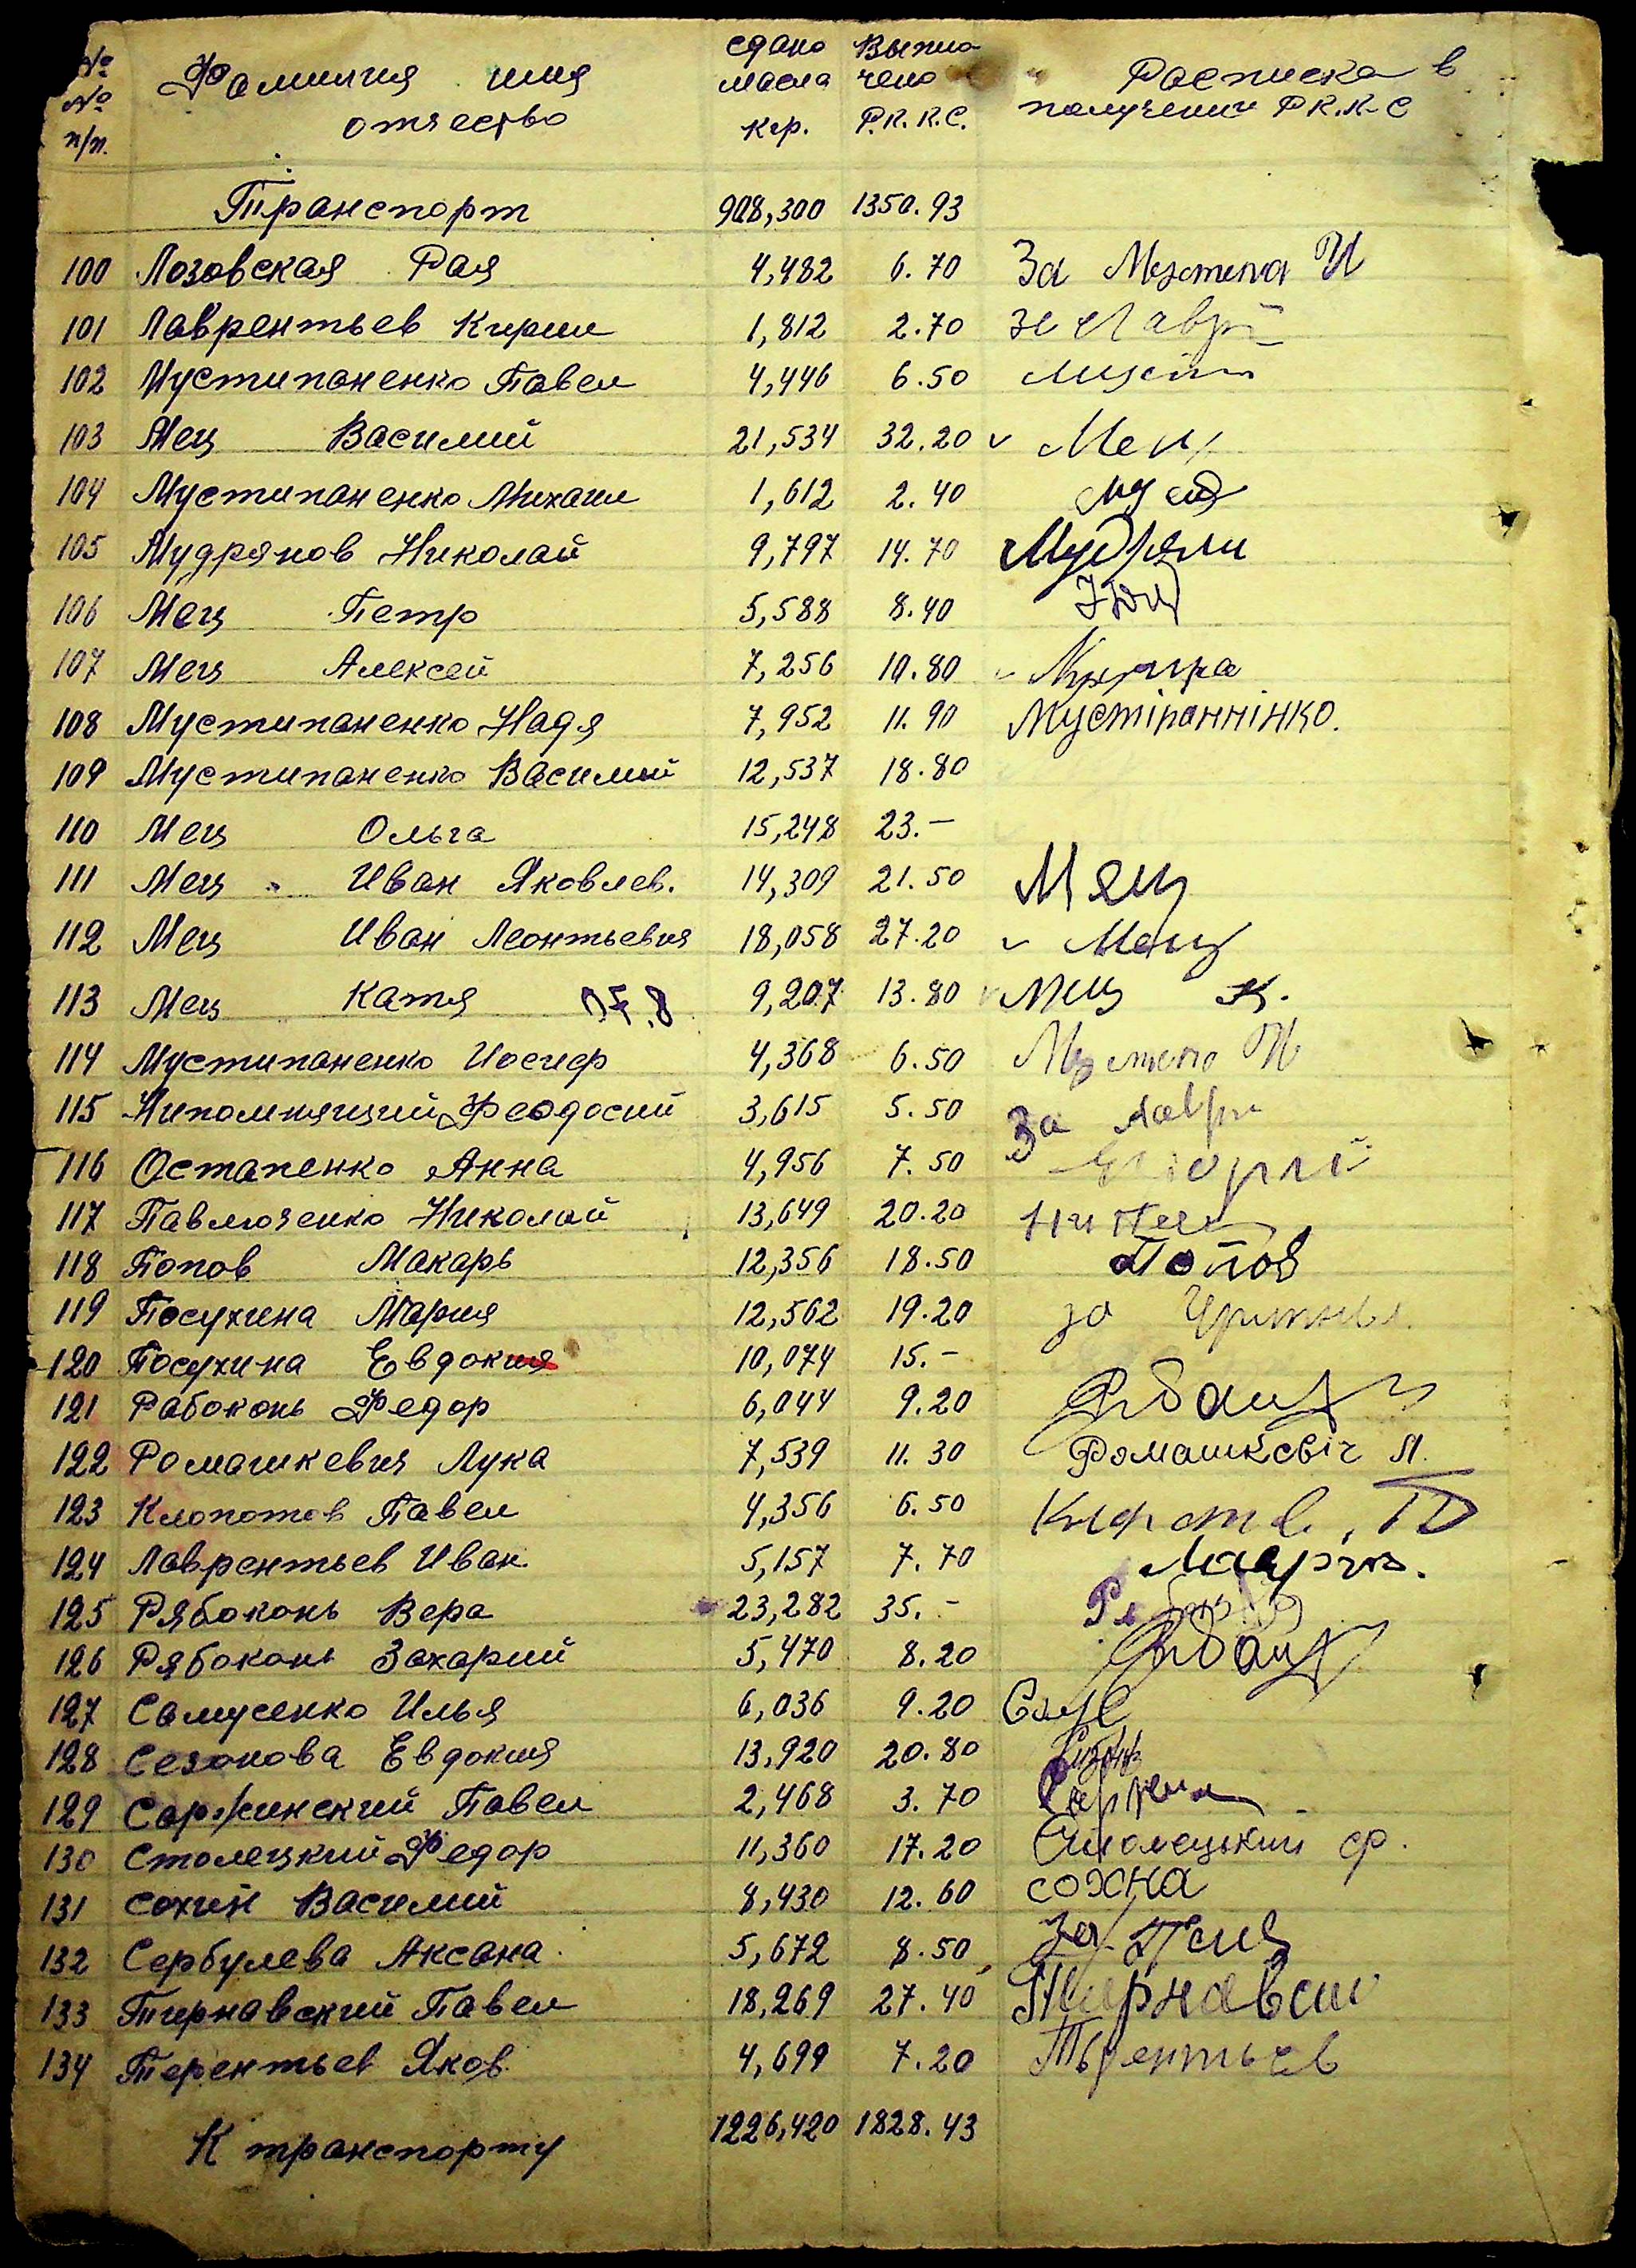 № № п/п. Фамилия имя отчество сдано масла кгр. Выпла чено Р.К.К.С. Расписка в получении Р.К.К.С
Транспорт 908,300 1350.93
100 Лозовская Рая 4,482 6.70 За И
101 Лаврентьев Кирил 1,812 2.70 за Лавр
102 Мустипаненко Павел 4,446 6.50
103 Мец Василий 21,534 32.20 v Мец
104 Мустипаненко Михаил 1,612 2.40
105 Мудрянов Николай 9,797 14.70
106 Мец Петр 5,588 8.40
107 Мец Алексей 7,256 10.80
108 Мустипаненко Надя 7,952 11.90 Мустіпаннінко.
109 Мустипаненко Василий 12,537 18.80
110 Мец Ольга 15,248 23.-
111 Мец Иван Яковлев. 14,309 21.50 Мец
112 Мец Иван Леонтьевич 18,058 27.20 v Мец
113 Мец Катя 9,207 13.80 v Мец К.
114 Мустипаненко Иосиф 4,368 6.50 И
115 Нипомнящий Феодосий 3,615 5.50 За Лавр
116 Остапенко Анна 4,956 7.50
117 Павлюченко Николай 13,649 20.20
118 Попов Макарь 12,356 18.50 Попов
119 Посухина Мария 12,562 19.20 за
120 Посухина Евдокия 10,074 15.-
121 Рабоконь Федор 6,044 9.20
122 Ромашкевич Лука 7,539 11.30 Ромашкевіч Л.
123 Клопотов Павел 4,356 6.50
124 Лаврентьев Иван 5,157 7.70
125 Рябоконь Вера 23,282 35.-
126 Рябоконь Захарий 5,470 8.20
127 Самусенко Илья 6,036 9.20
128 Сезонова Евдокия 13,920 20.80
129 Саржинский Павел 2,468 3.70
130 Столецкий Федор 11,360 17.20 Столецький ф.
131 Сохин Василий 8,430 12.60 сохна
132 Сербулева Аксана 5,672 8.50 За
133 Тирнавский Павел 18,269 27.40 Тирнавски
134 Терентьев Яков 4,699 7.20 Терентьев
К транспорту 1226,420 1828.43